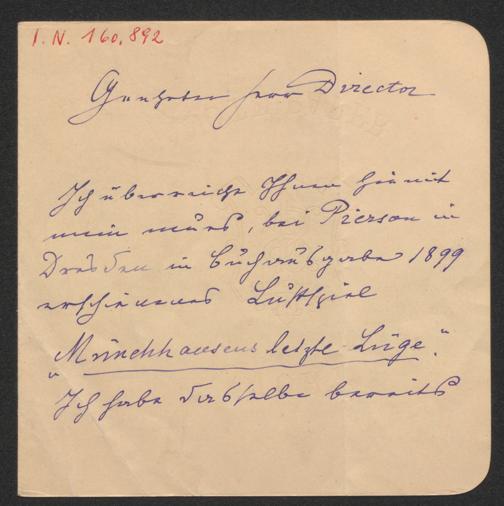 I. N. 160.892
Geehrter Herr Director
Ich überreiche Ihnen hiemit
mein neues, bei Pierson in
Dresden in Buchausgabe 1899
erschienenes Lustspiel
„Münchhausens letzte Lüge“.
Ich habe dasselbe bereits